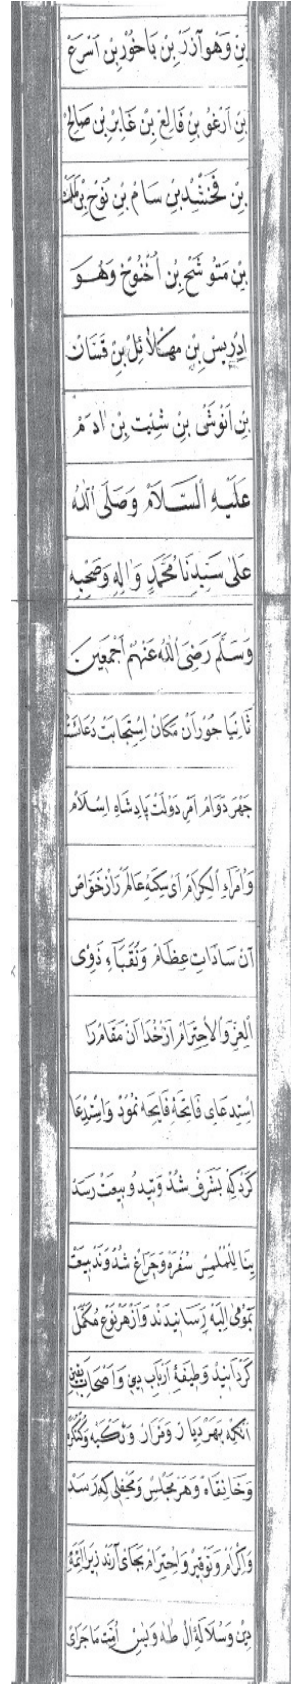 بِنْ وَهُوَ آزَرْ بِنْ بَاخُورْ بِنْ اَسْرَعْ
بِنْ اَرْغُو بِنْ فَالِغْ بِنْ غَابِرْ بِنْ صَالِحْ
بِنْ فَخْشَدْ بِنْ سَامْ بِنْ نُوحْ بِنْ لَمَكْ
بِنْ مَتُوشَحْ بِنْ اُخْنُوخْ وَهُوَ
اِدْرِيسْ بِنْ مَهْكَلَائِلْ بِنْ قَنَانْ
بِنْ اَنُوشَىْ بِنْ شِيثْ بِنْ اٰدَمْ
عَلَيْهِ اَلسَّلَامْ وَصَلَّى اَللهُ
عَلٰى سَيِّدِنَا مُحَمَّدٍ وَاٰلِهِ وَصَحْبِهِ
وَسَلَّمَ رَضِىَ اللهُ عَنْهُمْ اَجْمَعِينَ
ثَانِيًا چُورْ آنْ مَكَانْ اِسْتِجَابَتْ دُعَاسْتْ
جِهَرْ دَوَامْ اَمْرِ دَوْلَتْ پَادِشَاهِ اِسْلَامْ
وَاُمَرَاءِ اَلْكِرَامْ اَىْ سِكَّهِ عَالَمْ رَا اَزْ خَوَاصْ
آنْ سَادَاتِ عِظَامْ وَنُقَبَآءِ ذَوِى
اَلْعِزِّ وَالْاِحْتِرَامْ اَزْ خُدَا آنْ مَقَامْ رَا
اِسْتِدْعَاىِ فَاتِحَهْ فَايِحَهْ نَمُودْ وَاِسْتِدْعَا
كَرْدْ كِهْ بَشَرَفْ شُدْ وَبَيْعَتْ رَسَدْ
سُفْرَهْ وَچَرَاغْ شُدْ وَنَدْ بَيْعَتْ
اِلَيْهْ رَسَانِيدَنْدْ وَاَزْ هَرْ نَوْعْ مُكَمَّلْ
كَرْدَانِيدْ وَظِيفَهٔ اَرْبَابِ دِينْ وَاَصْحَابِ يَقِينْ
آنْكِهْ بَهَرْ دِيَارْ وَمَزَارْ وَتَكْيَهْ وَلَنْكَرْ
وَخَانِقَاهْ وَهَرْ مَجْلِسْ وَمَحْفِلِى كِهْ رَسَدْ
وَاِكْرَامْ وَتَوْقِيرْ وَاِحْتِرَامْ بَجَاىْ آرَنْدْ زِيرَا اَئِمَّهٔ
دِينْ وَسُلَالَهٔ آلِ طٰهٰ وَيٰسْ